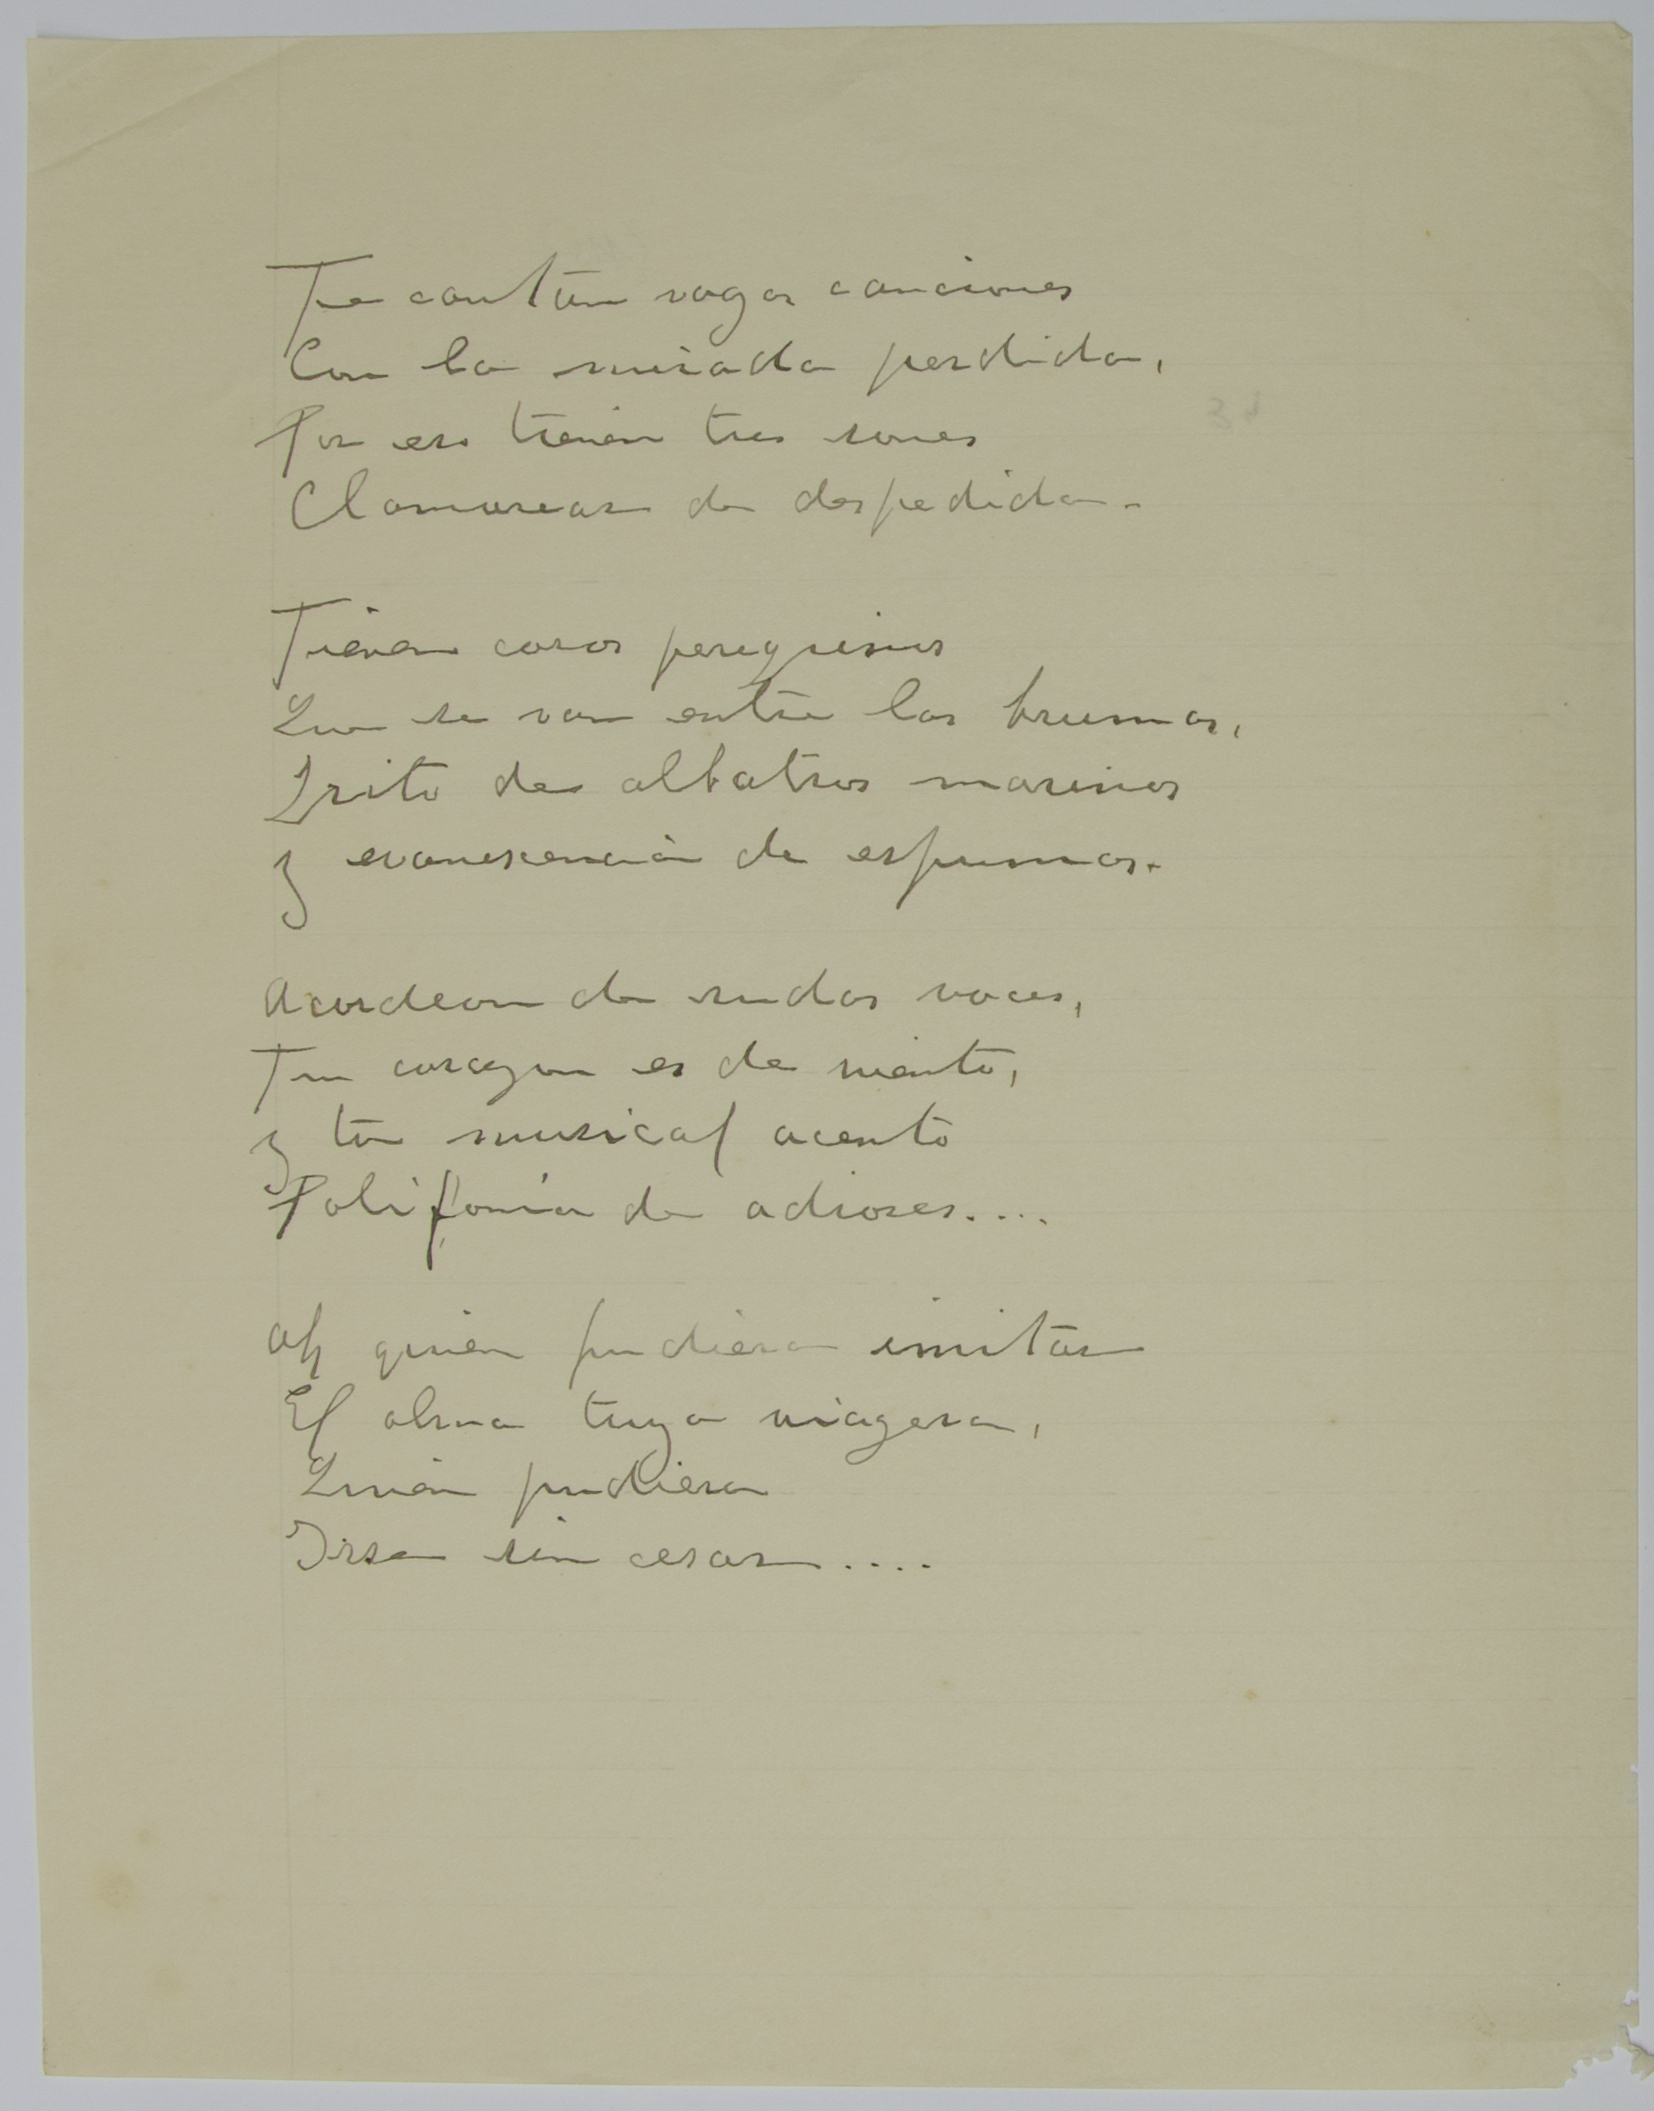 Te cantan vagas canciones
Con la mirada perdida,
Por eso tienen tus sones
Clamorear de despedida.
Tienen coros peregrinos
Que se van entre las brumas,
Grito de albatros marinos
y evanescencia de espumas.
Acordeon de rudas voces,
Tu corazon es de viento,
y tu musical acento
Polifonía de adioses....
Ah quien pudiera imitar
El alma tuya viagera,
Quien pudiera
Irse sin cesar....